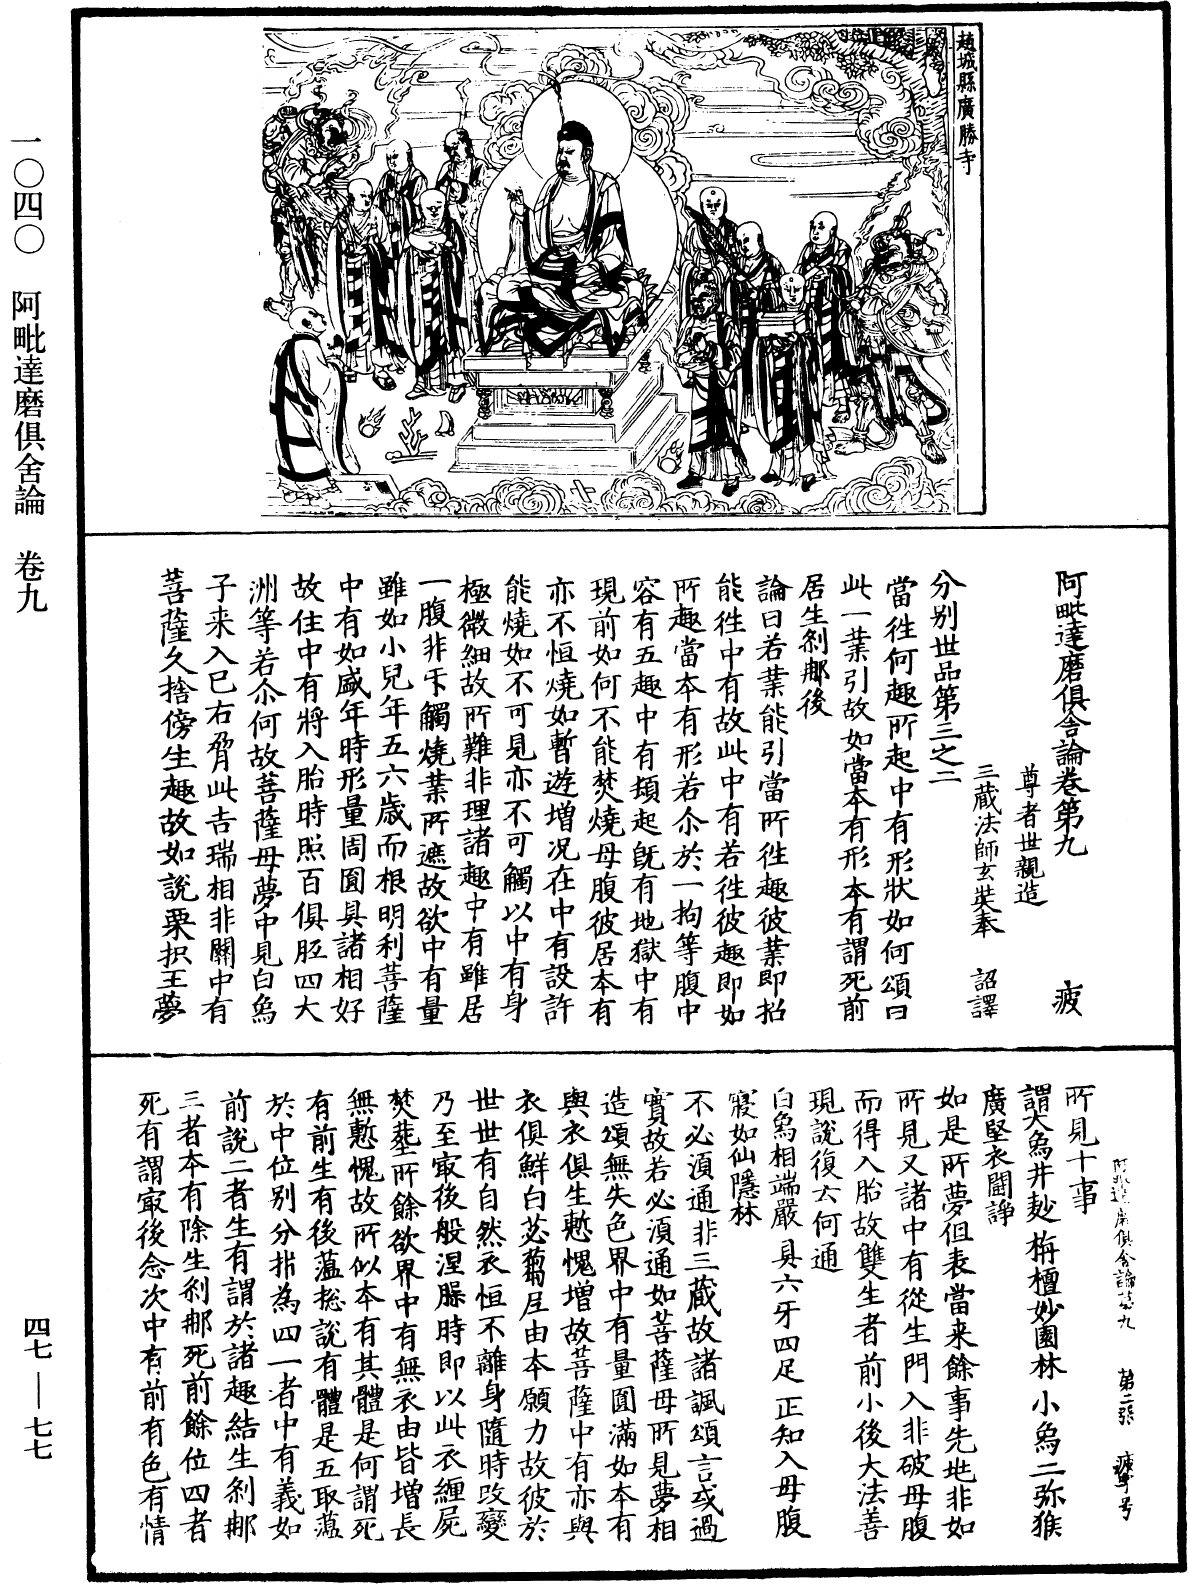 趙城縣廣勝寺
一〇四〇　阿毗達磨俱舍論　卷九
四七——七七
阿毗達磨俱舍論卷第九　疲
尊者世親造
三藏法師玄奘奉　詔譯
分别世品第三之二
當往何趣所起中有形狀如何頌曰
此一業引故如當本有形本有謂死前
居生剎那後
論曰若業能引當所往趣彼業即招
能往中有故此中有若往彼趣即如
所趣當本有形若尒於一拘等腹中
容有五趣中有頓起既有地獄中有
現前如何不能焚燒母腹彼居本有
亦不恒燒如暫遊增况在中有設許
能燒如不可見亦不可觸以中有身
極微細故所難非理諸趣中有雖居
一腹非牙觸燒業所遮故欲中有量
雖如小兒年五六歲而根明利菩薩
中有如盛年時形量周圓具諸相好
故住中有將入胎時照百俱胝四大
洲等若尒何故菩薩母夢中見白烏
子来入已右脅此吉瑞相非關中有
菩薩久捨傍生趣故如說栗枳王夢
所見十事
謂大烏井麨栴檀妙園林小烏二弥猴
廣堅衣鬪諍
如是所夢但表當来餘事先地非如
所見又諸中有從生門入非破母腹
而得入胎故雙生者前小後大法善
現說復云何通
白烏相端嚴具六牙四足正知入母腹
寢如仙隱林
不必湏通非三藏故諸諷頌言或過
實故若必湏通如菩薩母所見夢相
造頌無失色界中有量圓滿如本有
與衣俱生慙愧增故菩薩中有亦與
衣俱鮮白苾蒭尼由本願力故彼於
世世有自然衣恒不離身隨時改變
乃至㝡後般涅槃時即以此衣纏屍
焚葬所餘欲界中有無衣由皆增長
無慙愧故所似本有其體是何謂死
有前生有後蘊揔說有體是五取蘊
於中位别分㭊為四一者中有義如
前說二者生有謂於諸趣結生剎那
三者本有除生剎那死前餘位四者
死有謂㝡後念次中有前有色有情
阿毗達磨俱舍論卷九　第二張　疲字号